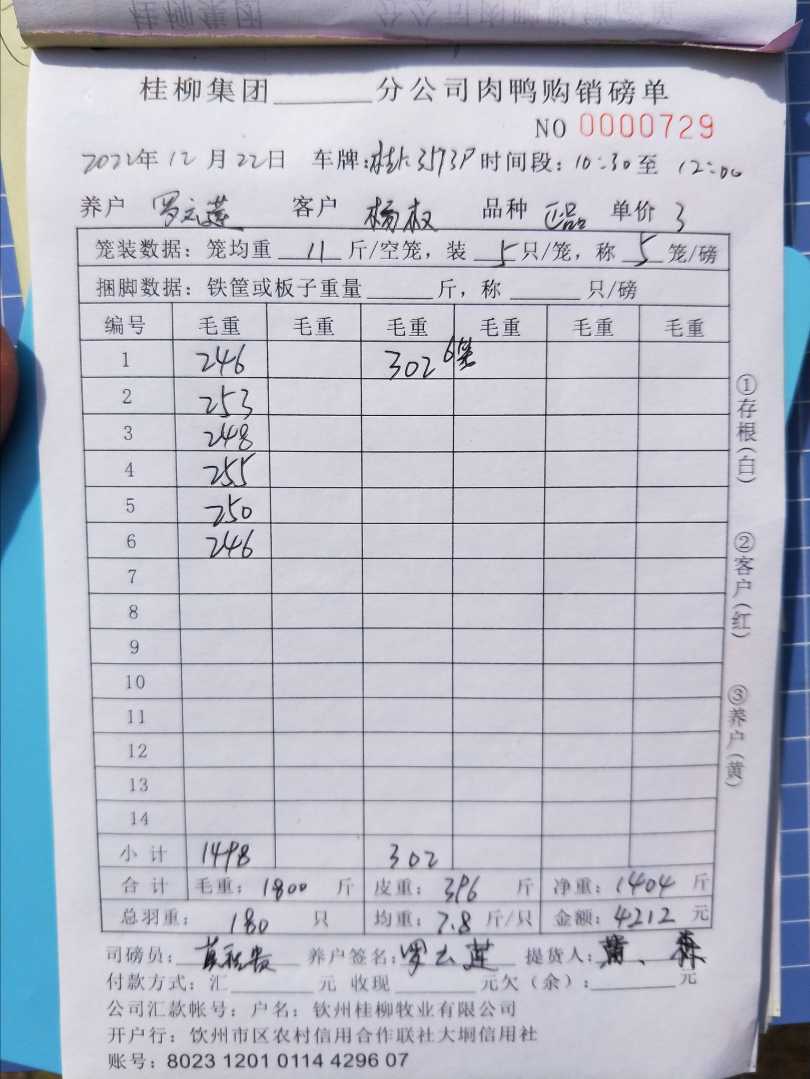 桂柳集团______分公司肉鸭购销磅单
NO 0000729
2022年12月22日 车牌:桂 3573P 时间段:10:30至12:00
养户 罗云莲 客户 杨权 品种 正品 单价 3
笼装数据:笼均重 11 斤/空笼,装 5 只/笼,称 5 笼/磅
捆脚数据:铁筐或板子重量______斤,称______只/磅
编号 毛重 毛重 毛重 毛重 毛重 毛重
1 246 302 6笼
2 253
3 248
4 255
5 250
6 246
7
8
9
10
11
12
13
14
小计 1498 302
合计 毛重:1800 斤 皮重:396 斤 净重:1404 斤
总羽重:180 只 均重:7.8 斤/只 金额:4212 元
司磅员: 养户签名:罗云莲 提货人:
付款方式:汇______元 收现______元欠(余):______元
公司汇款帐号:户名:钦州桂柳牧业有限公司
开户行:钦州市区农村信用合作联社大垌信用社
账号:8023 1201 0114 4296 07
①存根(白)
②客户(红)
③养户(黄)